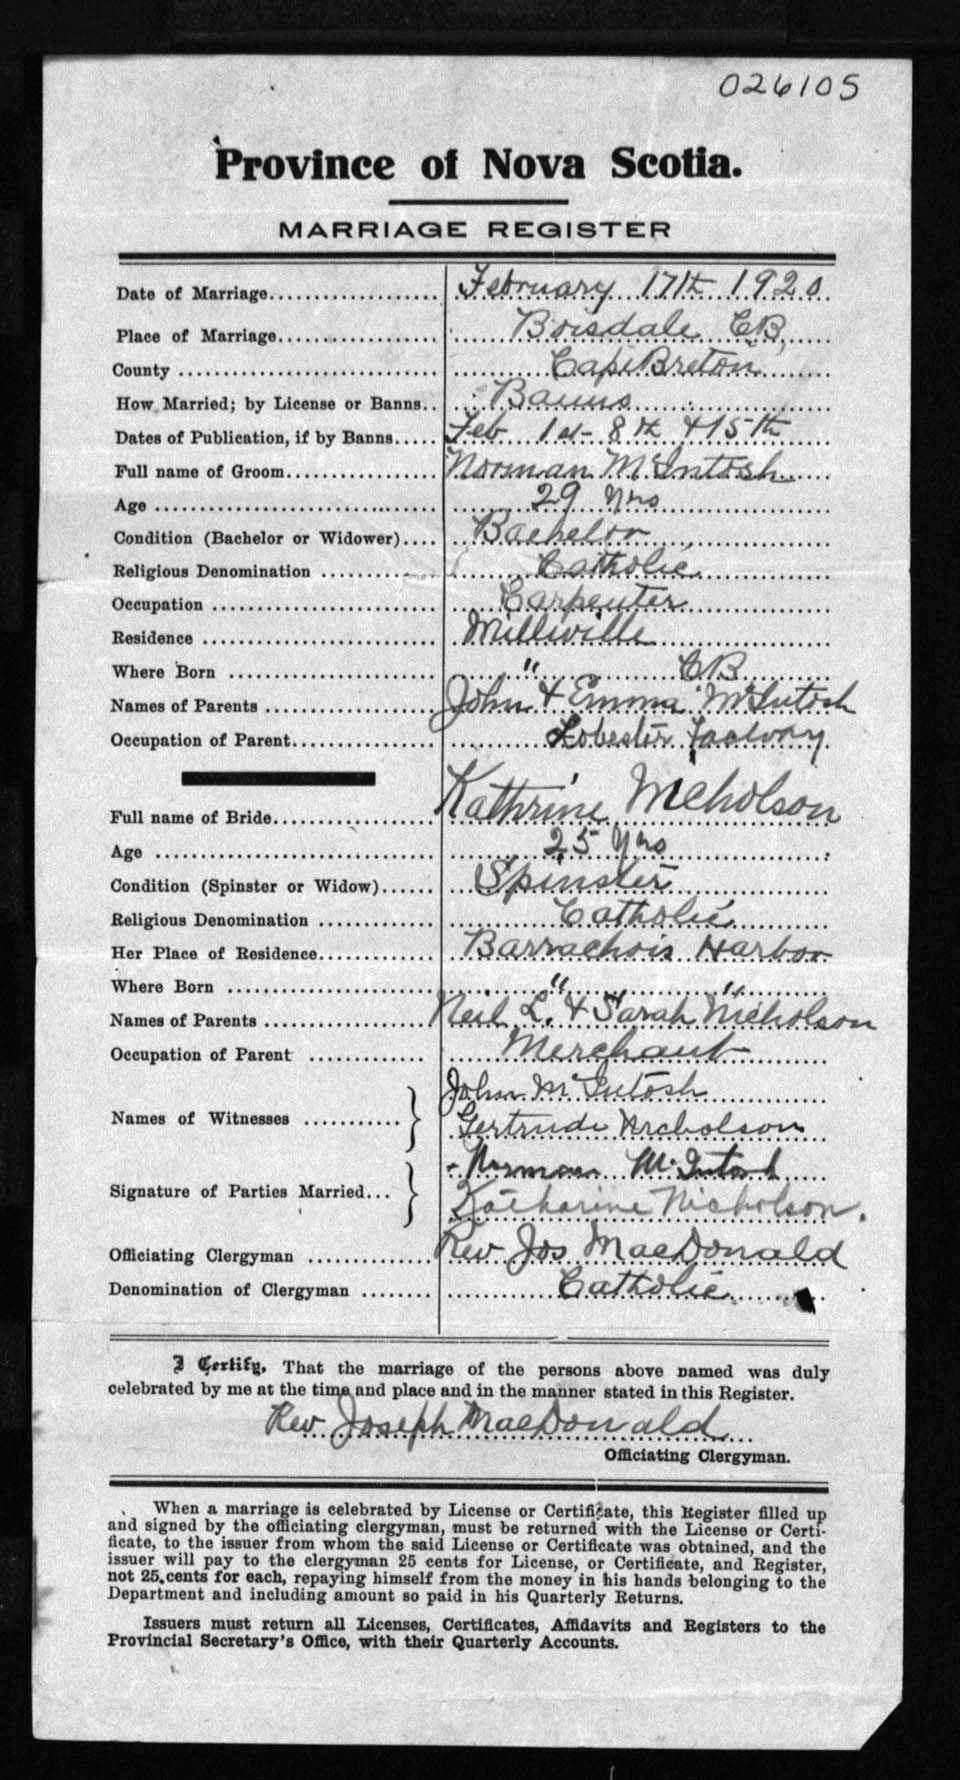 026105
Province of Nova Scotia.
MARRIAGE REGISTER
Date of Marriage.................... February 17th 1920
Place of Marriage................... Boisdale C.B,
County ............................. Cape Breton
How Married; by License or Banns.. Banns
Dates of Publication, if by Banns..... Feb 1st 8th & 15th
Full name of Groom.................. Norman McIntosh
Age ................................ 29 yrs
Condition (Bachelor or Widower).... Bachelor
Religious Denomination ............. Catholic
Occupation ......................... Carpenter
Residence .......................... Milliville
Where Born ......................... " CB
Names of Parents ................... John & Emma McIntosh
Occupation of Parent................ Lobester Factory
Full name of Bride.................. Kathrine Nicholson
Age ................................ 25 yrs
Condition (Spinster or Widow)...... Spinster
Religious Denomination ............. Catholic
Her Place of Residence............. Barrachois Harbor
Where Born ......................... " "
Names of Parents ................... Neil L. & Sarah Nicholson
Occupation of Parent ............. Merchant
John McIntosh
Names of Witnesses ...........}
Gertrude Nicholson
Norman McIntosh
Signature of Parties Married...}
Katharine Nicholson.
Officiating Clergyman .............. Rev Jos MacDonald
Denomination of Clergyman ........ Catholic
I Certify, That the marriage of the persons above named was duly
celebrated by me at the time and place and in the manner stated in this Register.
Rev Joseph MacDonald
Officiating Clergyman.
When a marriage is celebrated by License or Certificate, this Register filled up
and signed by the officiating clergyman, must be returned with the License or Certi-
ficate, to the issuer from whom the said License or Certificate was obtained, and the
issuer will pay to the clergyman 25 cents for License, or Certificate, and Register,
not 25 cents for each, repaying himself from the money in his hands belonging to the
Department and including amount so paid in his Quarterly Returns.
Issuers must return all Licenses, Certificates, Affidavits and Registers to the
Provincial Secretary's Office, with their Quarterly Accounts.